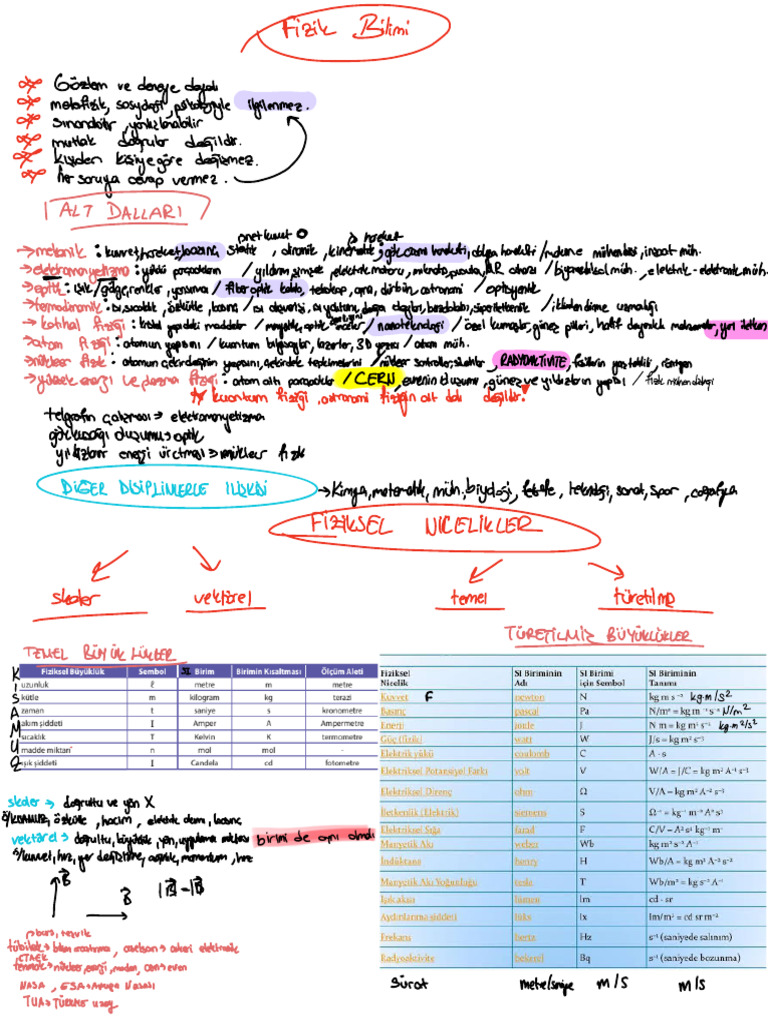 Fizik Bilimi
Gözlem ve deneye dayalı
metafizik, sosyoloji, psikolojiyle ilgilenmez.
Sınanabilir, yanlışlanabilir
mutlak doğrular değildir.
Kişiden kişiye göre değişmez.
her soruya cevap vermez.
ALT DALLARI
net kuvvet 0 hareket
→mekanik : kuvvet, hareket, basınç, statik, dinamik, kinematik, gök cismi hareketi, dalga hareketi / makine mühendisi, inşaat müh.
→elektromanyetizma : yüklü parçacıkların / yıldırım, şimşek, elektrik motoru, mikrodalga, pusula, MR cihazı / biyomedikal müh., elektrik-elektronik müh.
→optik : ışık/gölge, renkler, yansıma / fiber optik kablo, teleskop, ayna, dürbün, astronomi / optisyenlik
→termodinamik : ısı, sıcaklık, özkütle, basınç / ısı alışverişi,
→katıhal fiziği : kristal yapıdaki maddeler / manyetik, optik / nanoteknoloji / özel kumaşlar, güneş pilleri, hafif dayanıklı malzemeler, yarı iletken
→atom fiziği : atomun yapısını / kuantum bilgisayar, lazerler, 3D yazıcı / atom müh.
→nükleer fizik : atomun çekirdeğinin yapısını, çekirdek tepkimelerini / nükleer santraller, silahlar, RADYOAKTİVİTE, fosillerin yaş tespiti, röntgen
→yüksek enerji ve plazma fiziği : atom altı parçacıklar / CERN, evrenin oluşumu, güneş ve yıldızların yapısı / fizik mühendisliği
kuantum fiziği, astronomi fiziğin alt dalı değildir.
telgrafın çalışması → elektromanyetizma
gökkuşağı oluşumu → optik
yıldızların enerji üretmesi → nükleer fizik
DİĞER DİSİPLİNLERLE İLİŞKİSİ → Kimya, matematik, müh., biyoloji, felsefe, teknoloji, sanat, spor, coğrafya
FİZİKSEL NİCELİKLER
skaler vektörel temel türetilmiş
TEMEL BÜYÜKLÜKLER
TÜRETİLMİŞ BÜYÜKLÜKLER
Fiziksel Büyüklük Sembol SI Birim Birimin Kısaltması Ölçüm Aleti
K uzunluk ℓ metre m metre
I kütle m kilogram kg terazi
S zaman t saniye s kronometre
A akım şiddeti I Amper A Ampermetre
M sıcaklık T Kelvin K termometre
U madde miktarı n mol mol -
Z ışık şiddeti I Candela cd fotometre
Fiziksel Nicelik SI Biriminin Adı SI Birimi için Sembol SI Biriminin Tanımı
Kuvvet F newton N kg m s⁻² kg·m/s²
Basınç pascal Pa N/m² = kg m⁻¹ s⁻² N/m²
Enerji joule J N m = kg m² s⁻² kg·m²/s²
Güç (fizik) watt W J/s = kg m² s⁻³
Elektrik yükü coulomb C A · s
Elektriksel Potansiyel Farkı volt V W/A = J/C = kg m² A⁻¹ s⁻³
Elektriksel Direnç ohm Ω V/A = kg m² A⁻² s⁻³
İletkenlik (Elektrik) siemens S
Elektriksel Sığa farad F
Manyetik Akı weber Wb kg m² s⁻² A⁻¹
İndüktans henry H Wb/A = kg m² A⁻² s⁻²
Manyetik Akı Yoğunluğu tesla T Wb/m² = kg s⁻² A⁻¹
Işık akısı lümen lm cd · sr
Aydınlanma şiddeti lüks lx lm/m² = cd sr m⁻²
Frekans hertz Hz s⁻¹ (saniyede salınım)
Radyoaktivite bekerel Bq s⁻¹ (saniyede bozunma)
sürat metre/saniye m/s m/s
skaler → doğrultu ve yön X
özkütle, hacim, elektrik akımı, basınç
vektörel → doğrultu, büyüklük, yön, uygulama noktası birimi de aynı olmalı
kuvvet, hız, yer değiştirme, ağırlık, momentum, ivme
B B
burs, teşvik
tübitak → bilim araştırma, aselsan → askeri elektronik
TAEK
NASA, ESA → Avrupa Nasası
TUA → Türkiye uzay